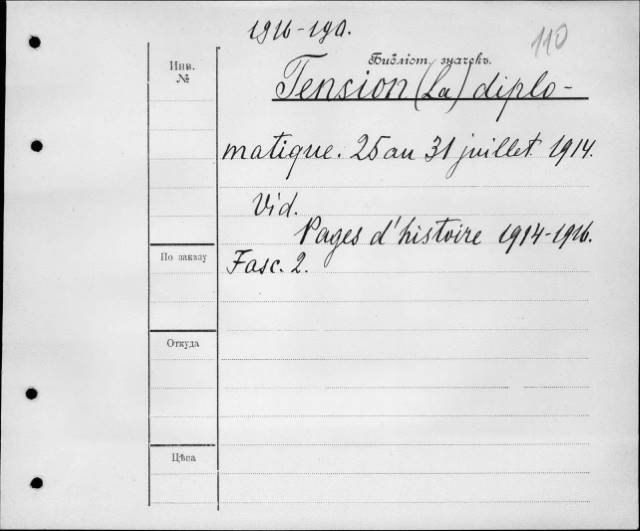 1916-190.
110
Инв.
№
Библіот. значекъ.
Tension (La) diplo-
matique. 25 au 31 juillet 1914.
Vid.
Pages d'histoire 1914-1916.
По заказу
Fasc. 2.
Откуда
Цѣна